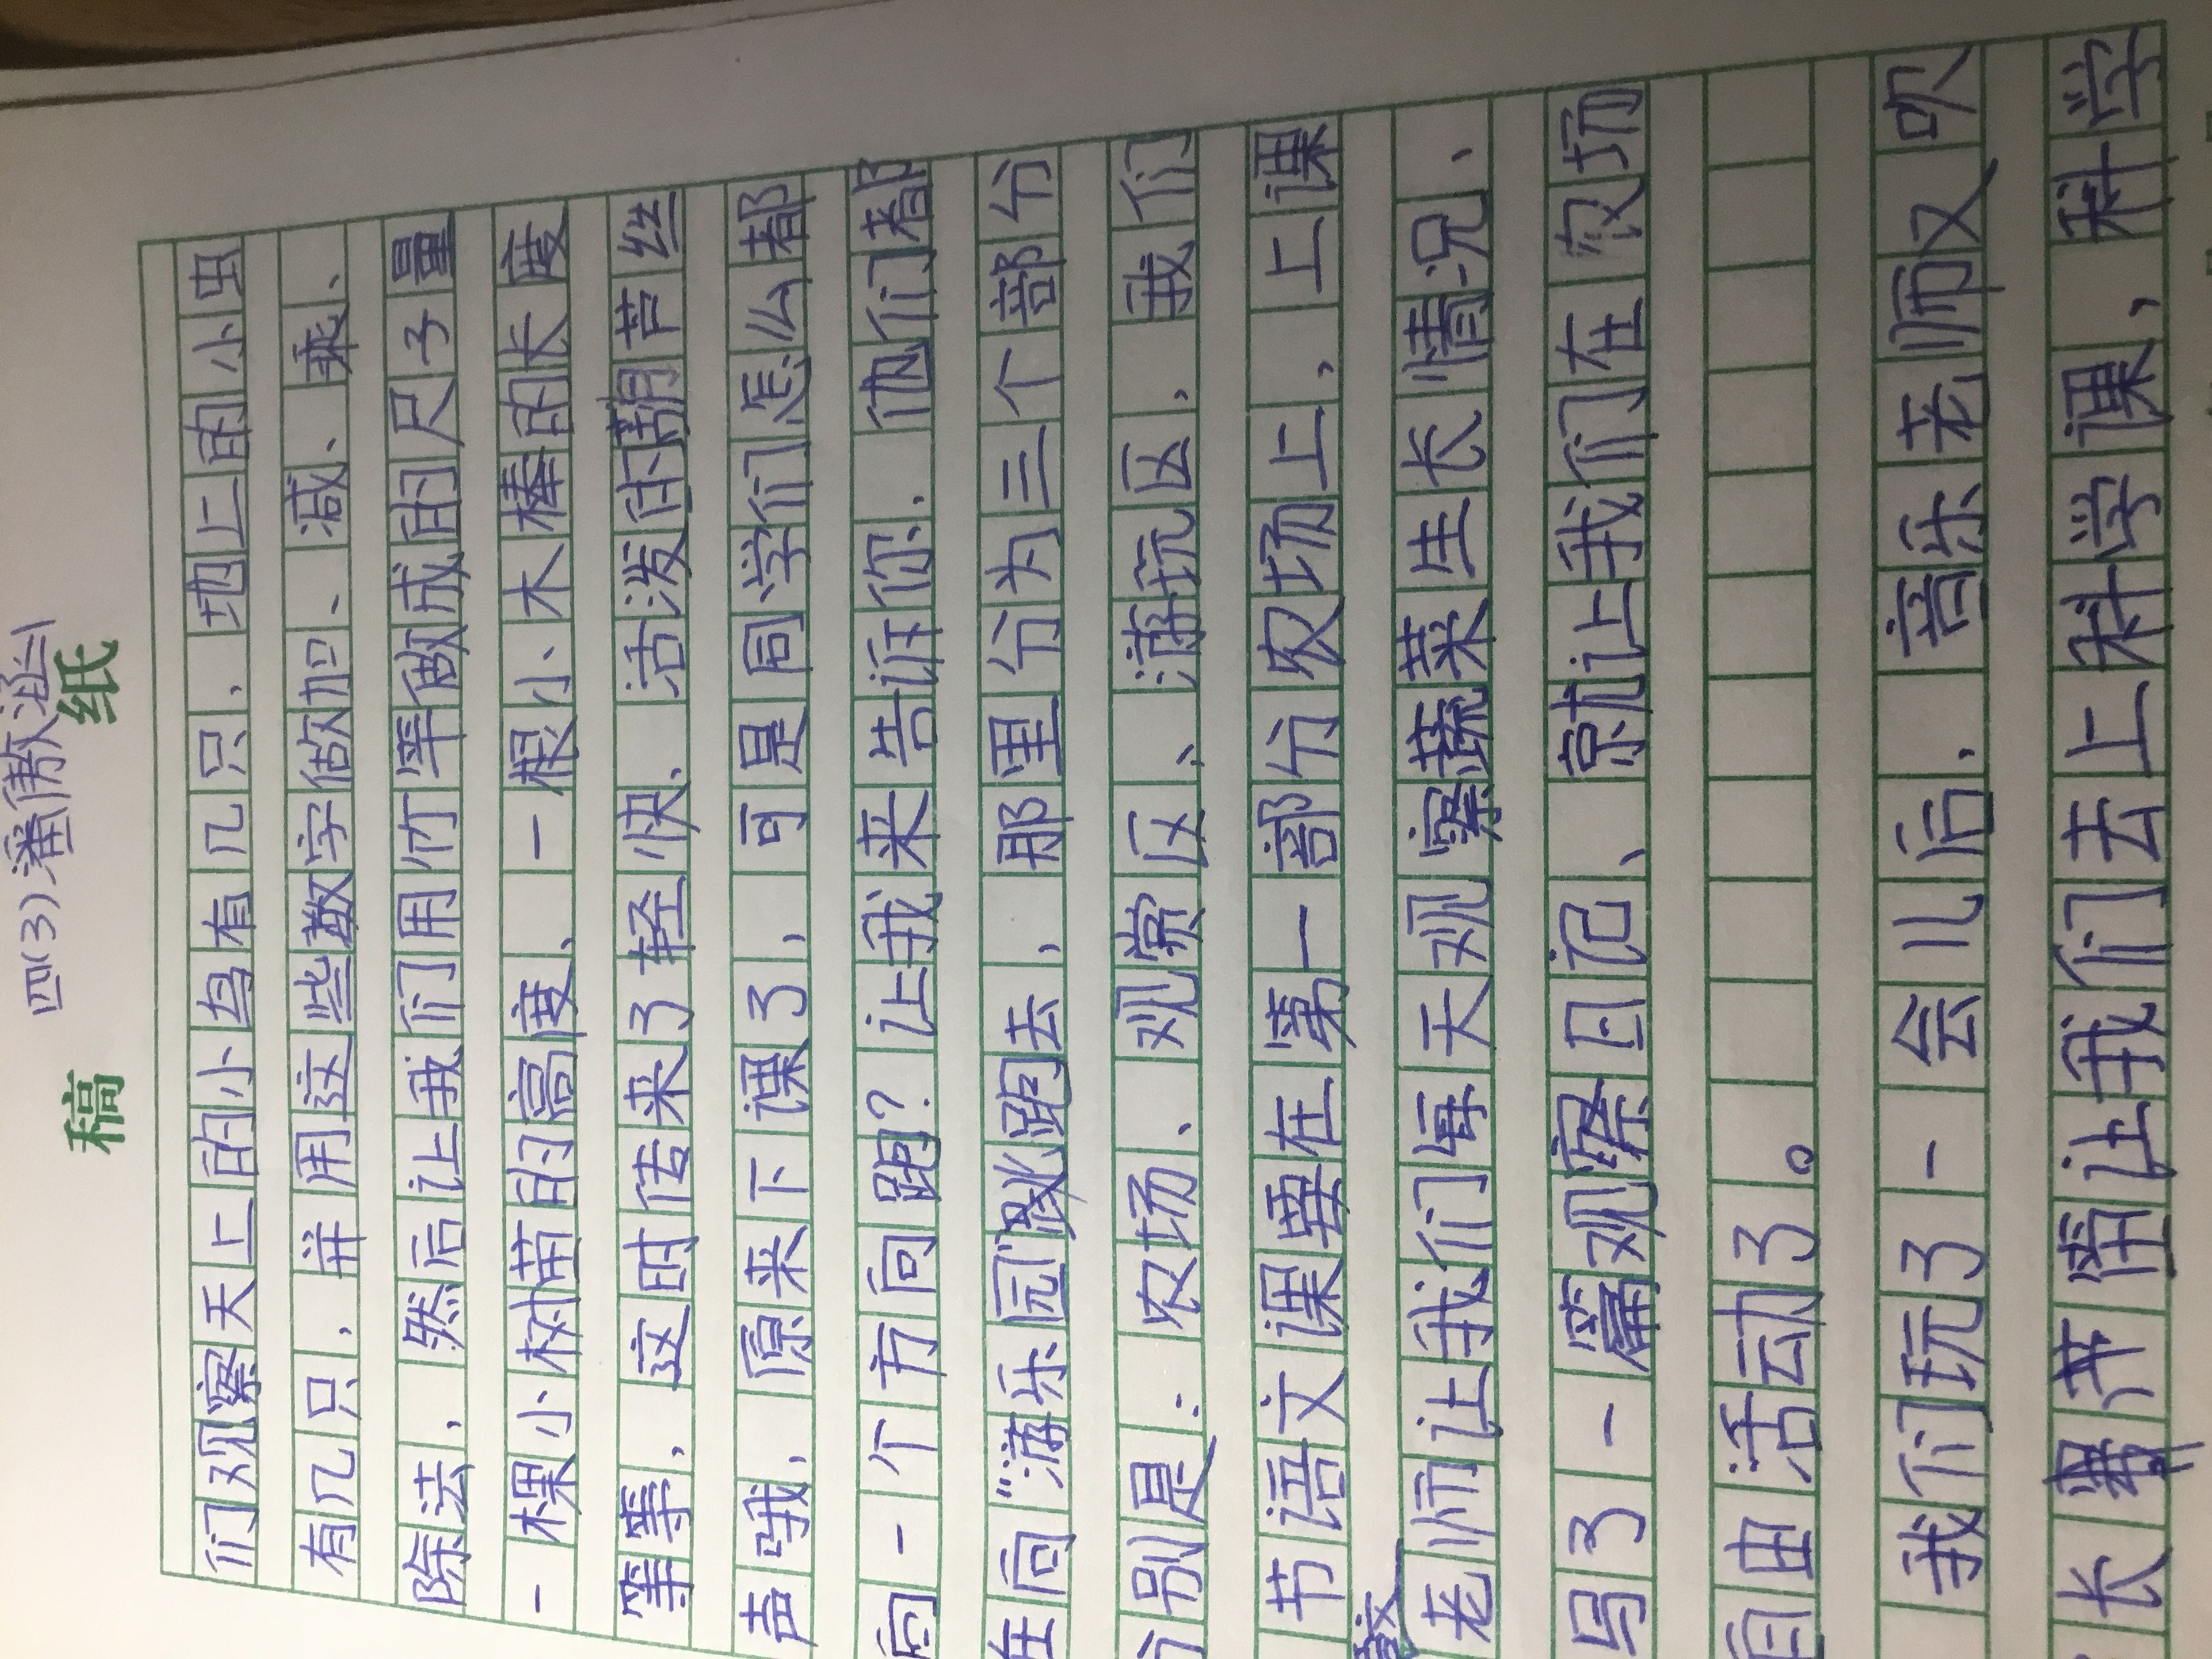 四(3)潘傲涵
稿 纸
们观察天上的小鸟有几只，地上的小虫
有几只，并用这些数字做加、减、乘、
除法，然后让我们用竹竿做成的尺子量
一棵小树苗的高度、一根小木棒的长度
等等，这时传来了轻快、活泼的葫芦丝
声哦，原来下课了，可是同学们怎么都
向一个方向跑？让我来告诉你，他们都
在向“满乐园”跑去，那里分为三个部分
分别是：农场、观赏区、满玩区，我们
节语文课要在第一部分农场上，上课
老师让我们每天观察蔬菜生长情况、
写了一篇观察日记、就让我们在农场
自由活动了。
我们玩了一会儿后，音乐老师又吹
长 让我们去上科学课，科学